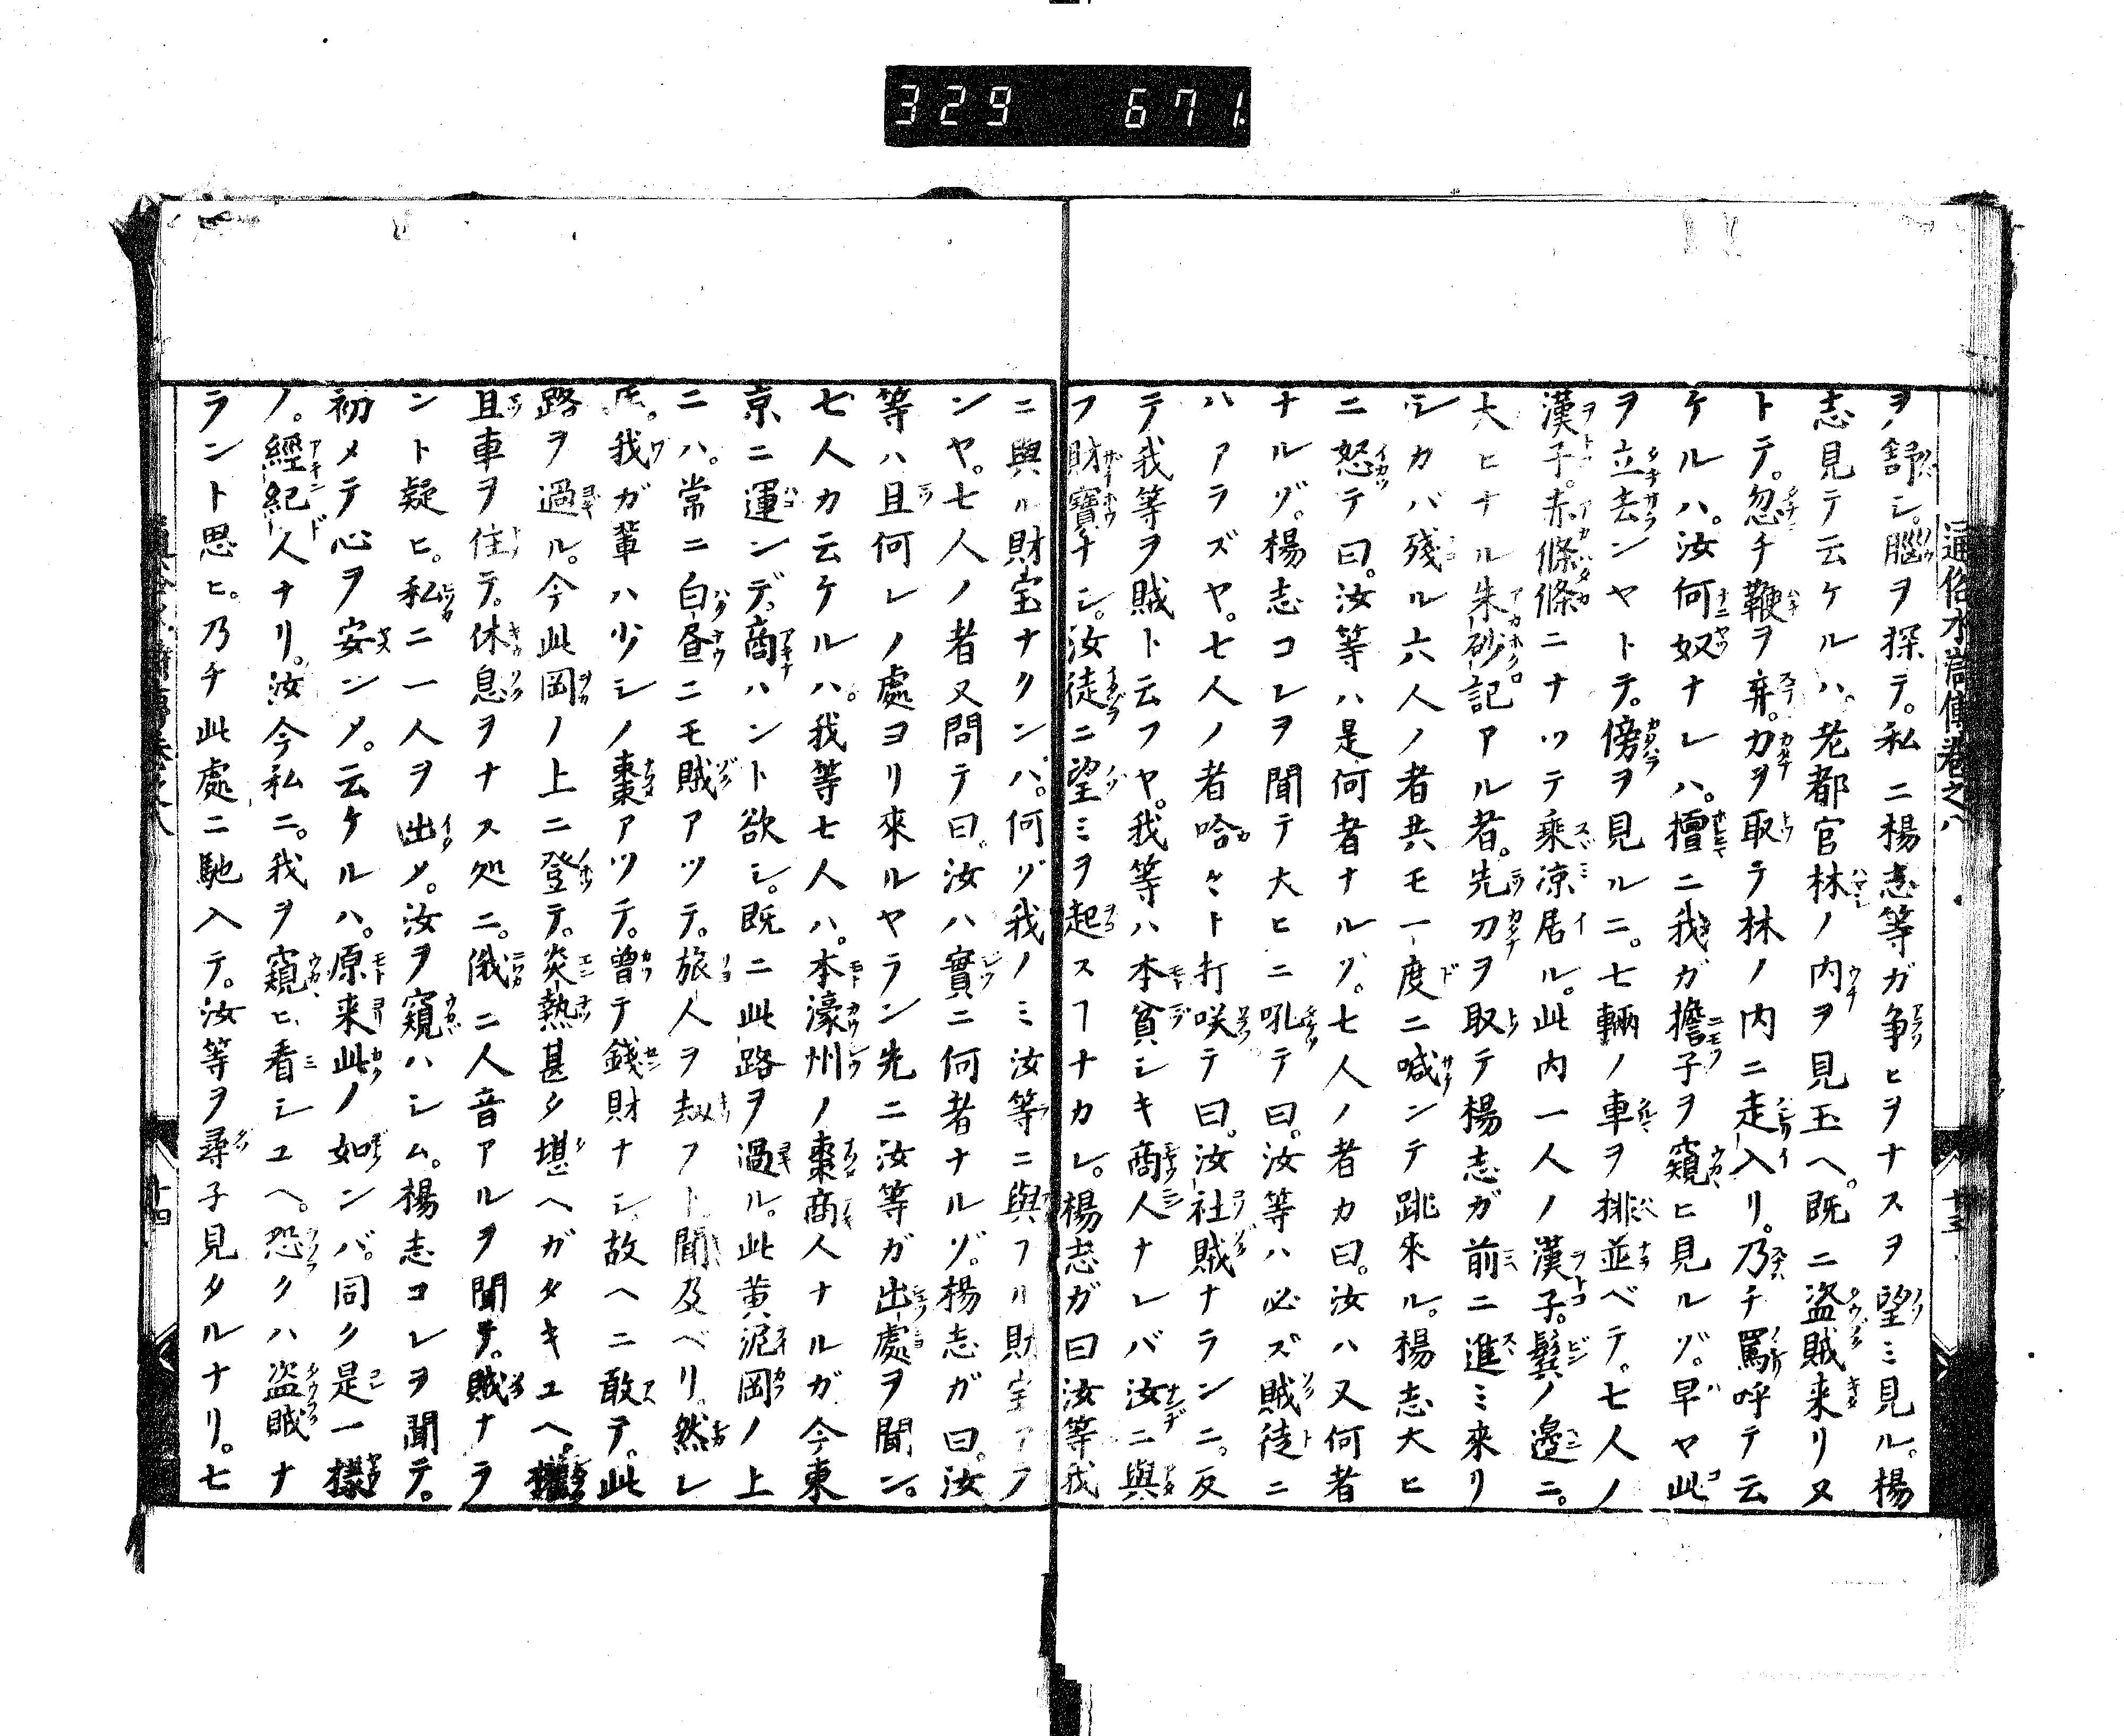 329 671
通俗水滸傳卷之八 十三
ヲ舒シ。腦ヲ探テ。私ニ楊志等ガ争ヒヲナスヲ望ミ見ル。楊
志見テ云ケルハ。老都官林ノ内ヲ見玉ヘ。既ニ盗賊来リヌ
トテ。忽チ鞭ヲ弃。刀ヲ取テ林ノ内ニ走入リ。乃チ罵呼テ云
ケルハ。汝何奴ナレハ。擅ニ我ガ擔子ヲ窺ヒ見ルゾ。早ヤ此
ヲ立去ンヤトテ。傍ヲ見ルニ。七輛ノ車ヲ排並ベテ。七人ノ
漢子。赤條條ニナツテ乘凉居ル。此内一人ノ漢子。鬂ノ邉ニ。
大ヒナル朱砂記アル者。先刀ヲ取テ楊志ガ前ニ進ミ来リ
シカバ殘ル六人ノ者共モ一度ニ喊ンテ跳來ル。楊志大ヒ
ニ怒テ曰。汝等ハ是何者ナルゾ。七人ノ者カ曰。汝ハ又何者
ナルゾ。楊志コレヲ聞テ大ヒニ吼テ曰。汝等ハ必ズ賊徒ニ
ハアラズヤ。七人ノ者哈々ト打咲テ曰。汝社賊ナランニ。反
テ我等ヲ賊ト云フヤ。我等ハ本貧シキ商人ナレバ汝ニ與
フ財寶ナシ。汝徒ニ望ミヲ起スヿナカレ。楊志ガ曰汝等我
ニ與ル財宝ナクンハ。何ゾ我ノミ汝等ニ與フル財宝アラ
ンヤ。七人ノ者又問テ曰。汝ハ實ニ何者ナルゾ。楊志ガ曰。汝
等ハ且何レノ處ヨリ來ルヤラン先ニ汝等ガ出處ヲ聞ン。
七人カ云ケルハ。我等七人ハ。本濠州ノ棗商人ナルガ今東
京ニ運ンデ。商ハント欲シ。既ニ此路ヲ過ル。此黄泥岡ノ上
ニハ。常ニ白昼ニモ賊アツテ。旅人ヲ刼フト聞及ベリ。然レ
𪜈。我ガ輩ハ少シノ棗アツテ。曽テ錢財ナシ。故ヘニ敢テ。此
路ヲ過ル。今此岡ノ上ニ登テ。炎熱甚タ堪ヘガタキユヘ。
且車ヲ住テ。休息ヲナス処ニ。俄ニ人音アルヲ聞テ。賊ナラ
ント疑ヒ。私ニ一人ヲ出メ。汝ヲ窺ハシム。楊志コレヲ聞テ。
初メテ心ヲ安ンメ。云ケルハ。原来此ノ如ンバ。同ク是一樣
ノ。經紀人ナリ。汝今私ニ。我ヲ窺ヒ看シユヘ。恐クハ盗賊ナ
ラント思ヒ。乃チ此處ニ馳入テ。汝等ヲ尋子見タルナリ。七
十四